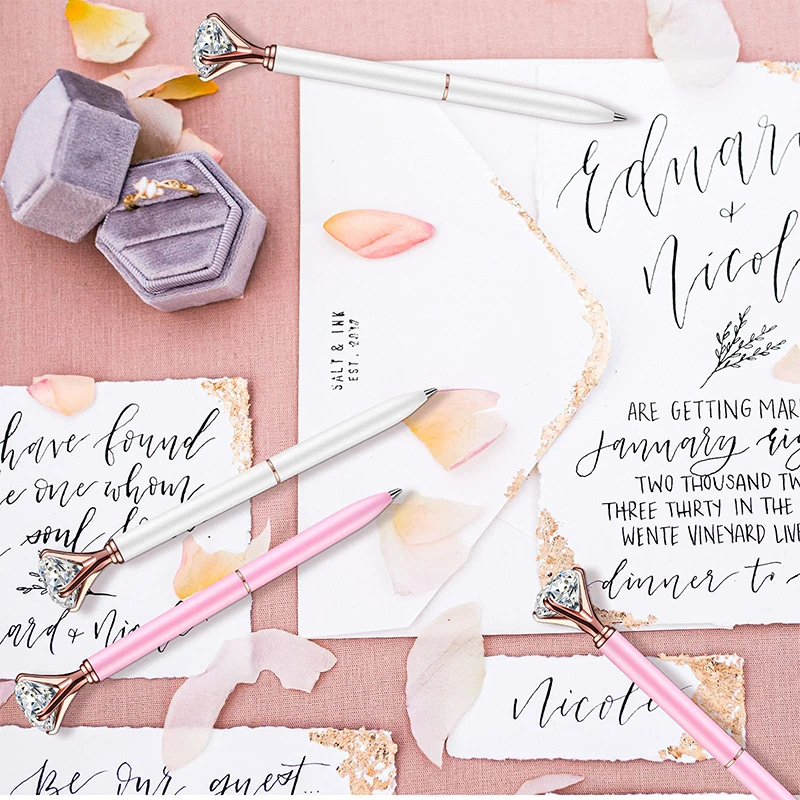 SALT & INK
EST. 2017
Eduar
+
Nicol
ARE GETTING MAR
January eig
TWO THOUSAND TW
THREE THIRTY IN THE
WENTE VINEYARD LIVE
dinner to
have found
e one whom
soul
ard + Nic
Nicole
Be our guest...